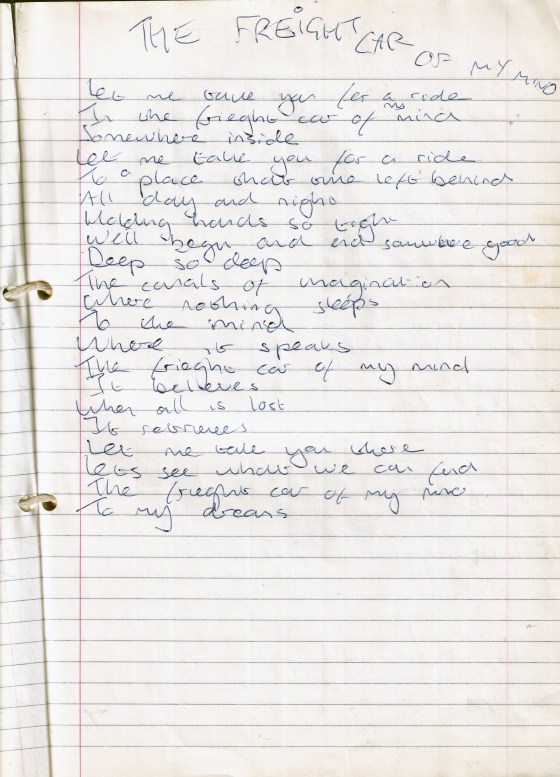 THE FREIGHT CAR OF MY MIND
Let me take you for a ride
In the frieght car of my mind
Somewhere inside
Let me take you for a ride
To a place that time left behind
All day and night
Holding hands so tight
We'll begin and end somewhere good
Deep so deep
The canals of imagination
Where nothing sleeps
To the mind
Where it speaks
The frieght car of my mind
It believes
When all is lost
It retrieves
Let me take you there
Lets see what we can find
The frieght car of my mind
To my dreams